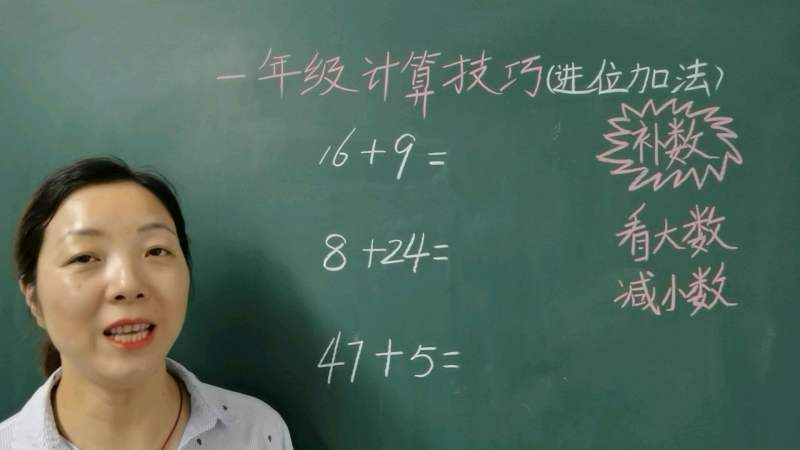 一年级计算技巧(进位加法)
补数
16+9=
看大数
8+24=
减小数
47+5=